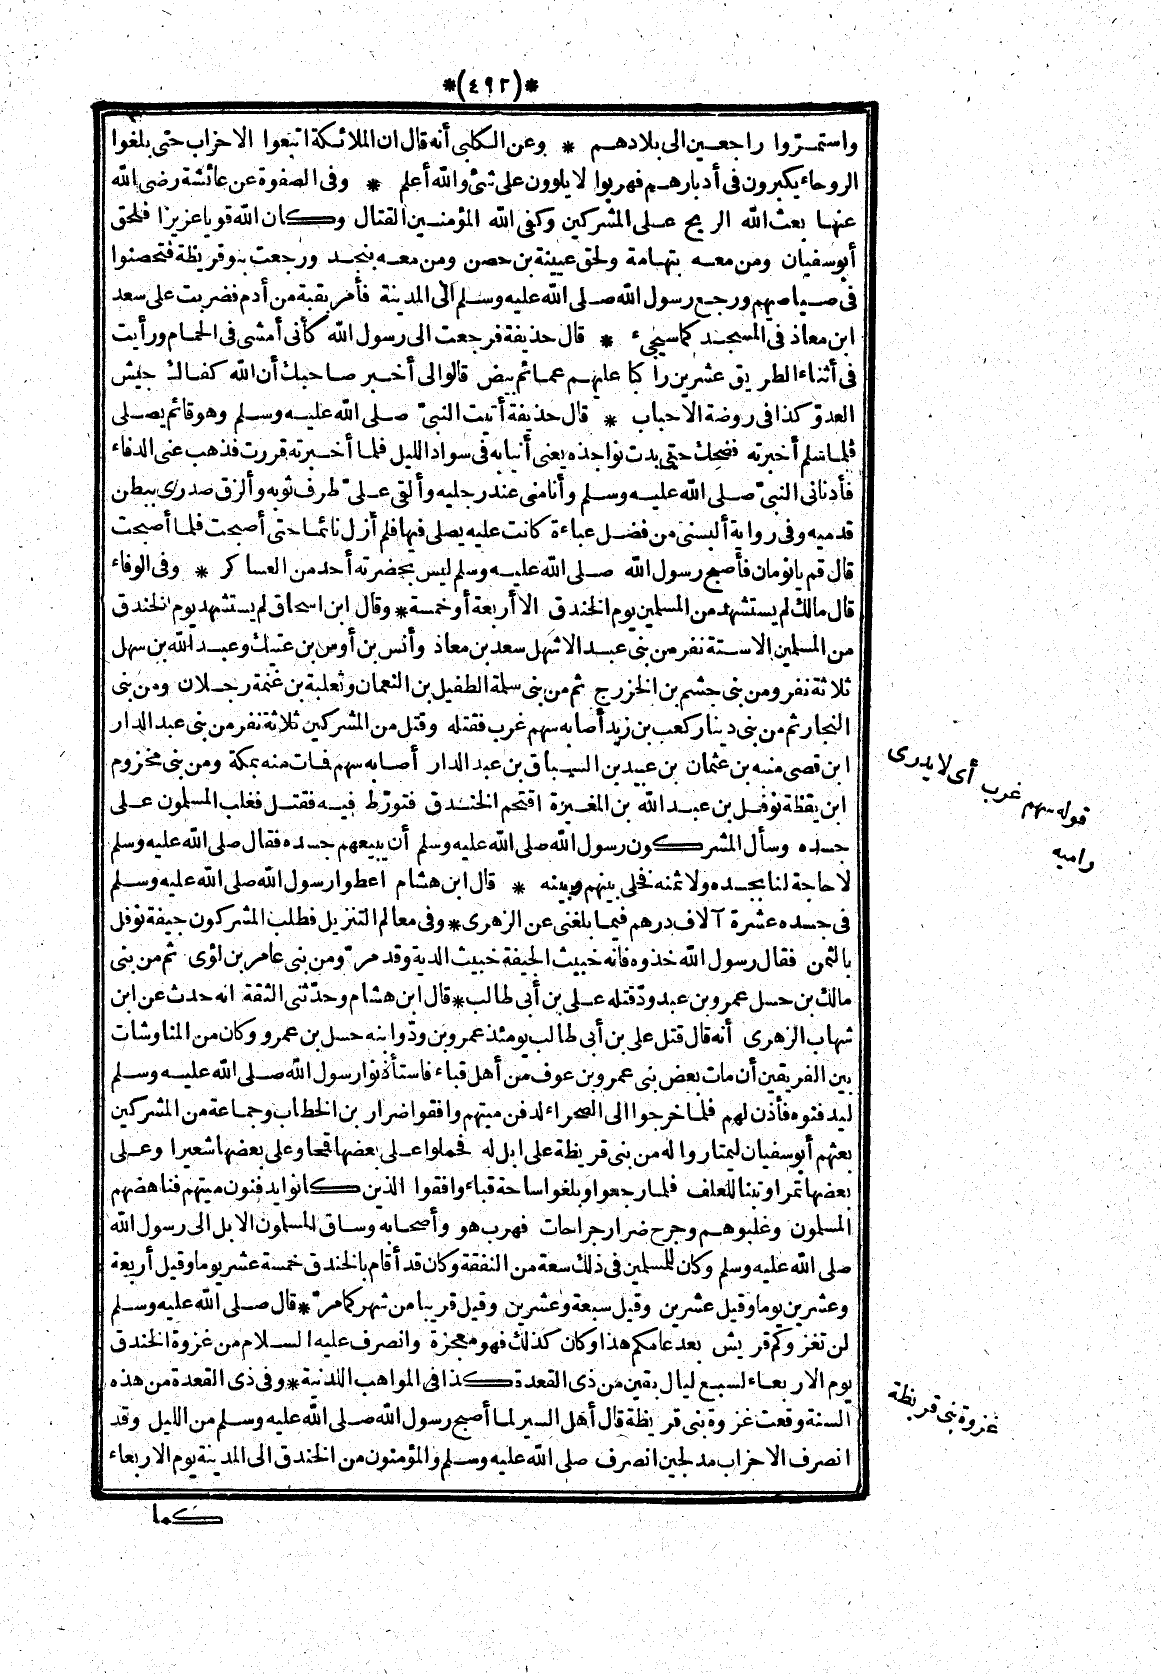 *(٤٩٢)*
واستمرّوا راجعين الى بلادهم * وعن الكلبى أنه قال ان الملائكة اتبعوا الاحزاب حتى بلغوا
الروحاء يكبرون فى أدبارهم فهربوا لا يلوون على شئ والله أعلم * وفى الصفوة عن عائشة رضى الله
عنها بعث الله الريح على المشركين وكفى الله المؤمنين القتال وكان الله قويا عزيزا فلحق
أبوسفيان ومن معه بتهامة ولحق عيينة بن حصن ومن معه بنجد ورجعت بنو قريظة فتحصنوا
فى صياصيهم ورجع رسول الله صلى الله عليه وسلم الى المدينة فأمر بقبة من أدم فضربت على سعد
ابن معاذ فى المسجد كما سيجىء * قال حذيفة فرجعت الى رسول الله كأنى أمشى فى الحمام ورأيت
فى أثناء الطريق عشرين راكبا عليهم عمائم بيض قالوا لى أخبر صاحبك أن الله كفاك جيش
العدوّ كذا فى روضة الاحباب * قال حذيفة أتيت النبىّ صلى الله عليه وسلم وهو قائم يصلى
فلما سلم أخبرته فضحك حتى بدت نواجذه يعنى أنيابه فى سواد الليل فلما أخبرته قررت فذهب عنى الدفاء
فأدنانى النبىّ صلى الله عليه وسلم وأنامنى عند رجليه وألقى علىّ طرف ثوبه وألزق صدرى ببطن
قدميه وفى رواية ألبسنى من فضل عباءة كانت عليه يصلى فيها فلم أزل نائما حتى أصبحت فلما أصبحت
قال قم يا نومان فأصبح رسول الله صلى الله عليه وسلم ليس بحضرته أحد من العساكر * وفى الوفاء
قال مالك لم يستشهد من المسلمين يوم الخندق الا أربعة أو خمسة * وقال ابن اسحاق لم يستشهد يوم الخندق
من المسلمين الا ستة نفر من بنى عبد الاشهل سعد بن معاذ وأنس بن أوس بن عتيك وعبد الله بن سهل
ثلاثة نفر ومن بنى جشم بن الخزرج ثم من بنى سلمة الطفيل بن النعمان وثعلبة بن غنمة رجلان ومن بنى
النجار ثم من بنى دينار كعب بن زيد أصابه سهم غرب فقتله وقتل من المشركين ثلاثة نفر من بنى عبد الدار
ابن قصى منبه بن عثمان بن عبيد بن السباق بن عبد الدار أصابه سهم فمات منه بمكة ومن بنى مخزوم
ابن يقظة نوفل بن عبد الله بن المغيرة اقتحم الخندق فتورّط فيه فقتل فغلب المسلمون على
جسده وسأل المشركون رسول الله صلى الله عليه وسلم أن يبيعهم جسده فقال صلى الله عليه وسلم
لا حاجة لنا بجسده ولا ثمنه فخلى بينهم وبينه * قال ابن هشام اعطوا رسول الله صلى الله عليه وسلم
فى جسده عشرة آلاف درهم فيما بلغنى عن الزهرى * وفى معالم التنزيل فطلب المشركون جيفة نوفل
بالثمن فقال رسول الله خذوه فانه خبيث الجيفة خبيث الدية وقد مرّ ومن بنى عامر بن لؤى ثم من بنى
مالك بن حسل عمرو بن عبد ودّ قتله على بن أبى طالب * قال ابن هشام وحدّثنى الثقة انه حدث عن ابن
شهاب الزهرى أنه قال قتل على بن أبى طالب يومئذ عمرو بن ودّ وابنه حسل بن عمرو وكان من المناوشات
بين الفريقين أن مات بعض بنى عمرو بن عوف من أهل قباء فاستأذنوا رسول الله صلى الله عليه وسلم
ليدفنوه فأذن لهم فلما خرجوا الى الصحراء لدفن ميتهم وافقوا ضرار بن الخطاب وجماعة من المشركين
بعثهم أبوسفيان ليمتاروا له من بنى قريظة على ابل له فحملوا على بعضها قمحا وعلى بعضها شعيرا وعلى
بعضها تمرا وتبنا للعلف فلما رجعوا وبلغوا ساحة قباء وافقوا الذين كانوا يدفنون ميتهم فناهضهم
المسلمون وغلبوهم وجرح ضرار جراحات فهرب هو وأصحابه وساق المسلمون الابل الى رسول الله
صلى الله عليه وسلم وكان للمسلمين فى ذلك سعة من النفقة وكان قد أقام بالخندق خمسة عشر يوما وقيل أربعة
وعشرين يوما وقيل عشرين وقيل سبعة وعشرين وقيل قريبا من شهر كما مرّ * قال صلى الله عليه وسلم
لن تغزوكم قريش بعد عامكم هذا وكان كذلك فهو معجزة وانصرف عليه السلام من غزوة الخندق
يوم الاربعاء لسبع ليال بقين من ذى القعدة كذا فى المواهب اللدنية * وفى ذى القعدة من هذه
السنة وقعت غزوة بنى قريظة قال أهل السير لما أصبح رسول الله صلى الله عليه وسلم من الليل وقد
انصرف الاحزاب مدلجين انصرف صلى الله عليه وسلم والمؤمنون من الخندق الى المدينة يوم الاربعاء
كما
قوله سهم غرب أى لا يدرى
راميه
غزوة بنى قريظة